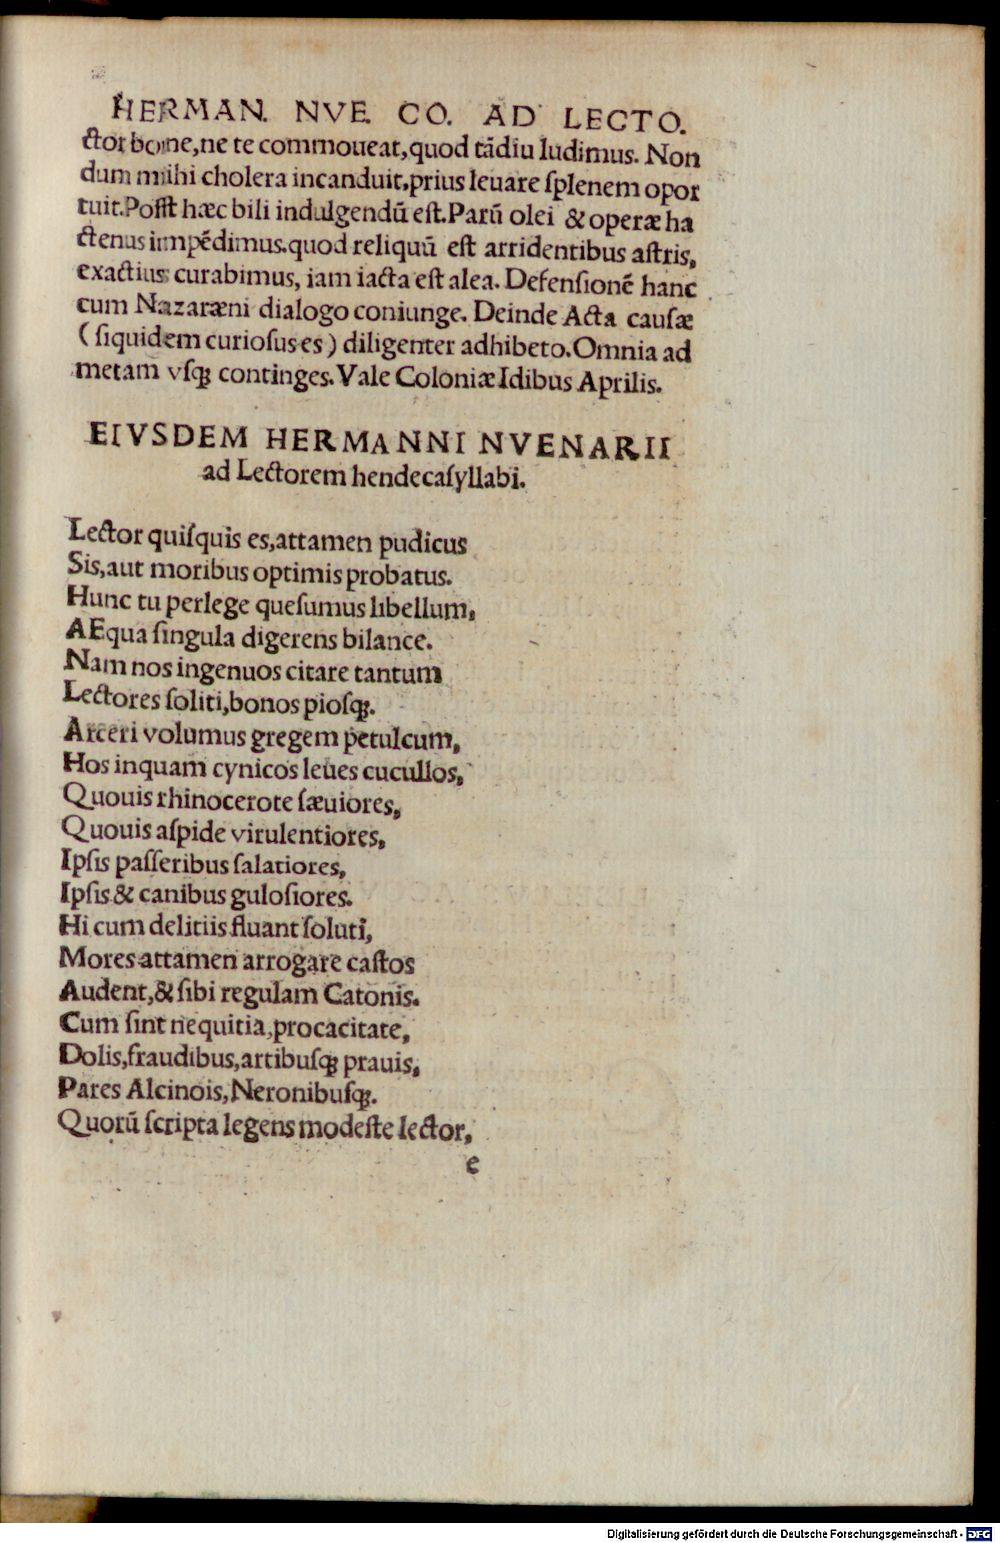 HERMAN. NVE. CO. AD LECTO.
ctor bone, ne te commoueat, quod tādiu ludimus. Non
dum mihi cholera incanduit, prius leuare ſplenem opor
tuit. Poſt hæc bili indulgendū eſt. Parū olei & operæ ha
ctenus impēdimus. quod reliquū eſt arridentibus aſtris,
exactius curabimus, iam iacta eſt alea. Defenſionē hanc
cum Nazaræni dialogo coniunge. Deinde Acta cauſæ
( ſiquidem curioſus es ) diligenter adhibeto. Omnia ad
metam vſqꝫ continges. Vale Coloniæ Idibus Aprilis.
EIVSDEM HERMANNI NVENARII
ad Lectorem hendecaſyllabi.
Lector quiſquis es, attamen pudicus
Sis, aut moribus optimis probatus.
Hunc tu perlege queſumus libellum,
AEqua ſingula digerens bilance.
Nam nos ingenuos citare tantum
Lectores ſoliti, bonos pioſqꝫ.
Arceri volumus gregem petulcum,
Hos inquam cynicos leues cucullos,
Quouis rhinocerote ſæuiores,
Quouis aſpide virulentiores,
Ipſis paſſeribus ſalatiores,
Ipſis & canibus guloſiores.
Hi cum delitiis fluant ſoluti,
Mores attamen arrogare caſtos
Audent, & ſibi regulam Catonis.
Cum ſint nequitia, procacitate,
Dolis, fraudibus, artibuſqꝫ prauis,
Pares Alcinois, Neronibuſqꝫ.
Quorū ſcripta legens modeſte lector,
e
Digitalisierung gefördert durch die Deutsche Forschungsgemeinschaft - DFG